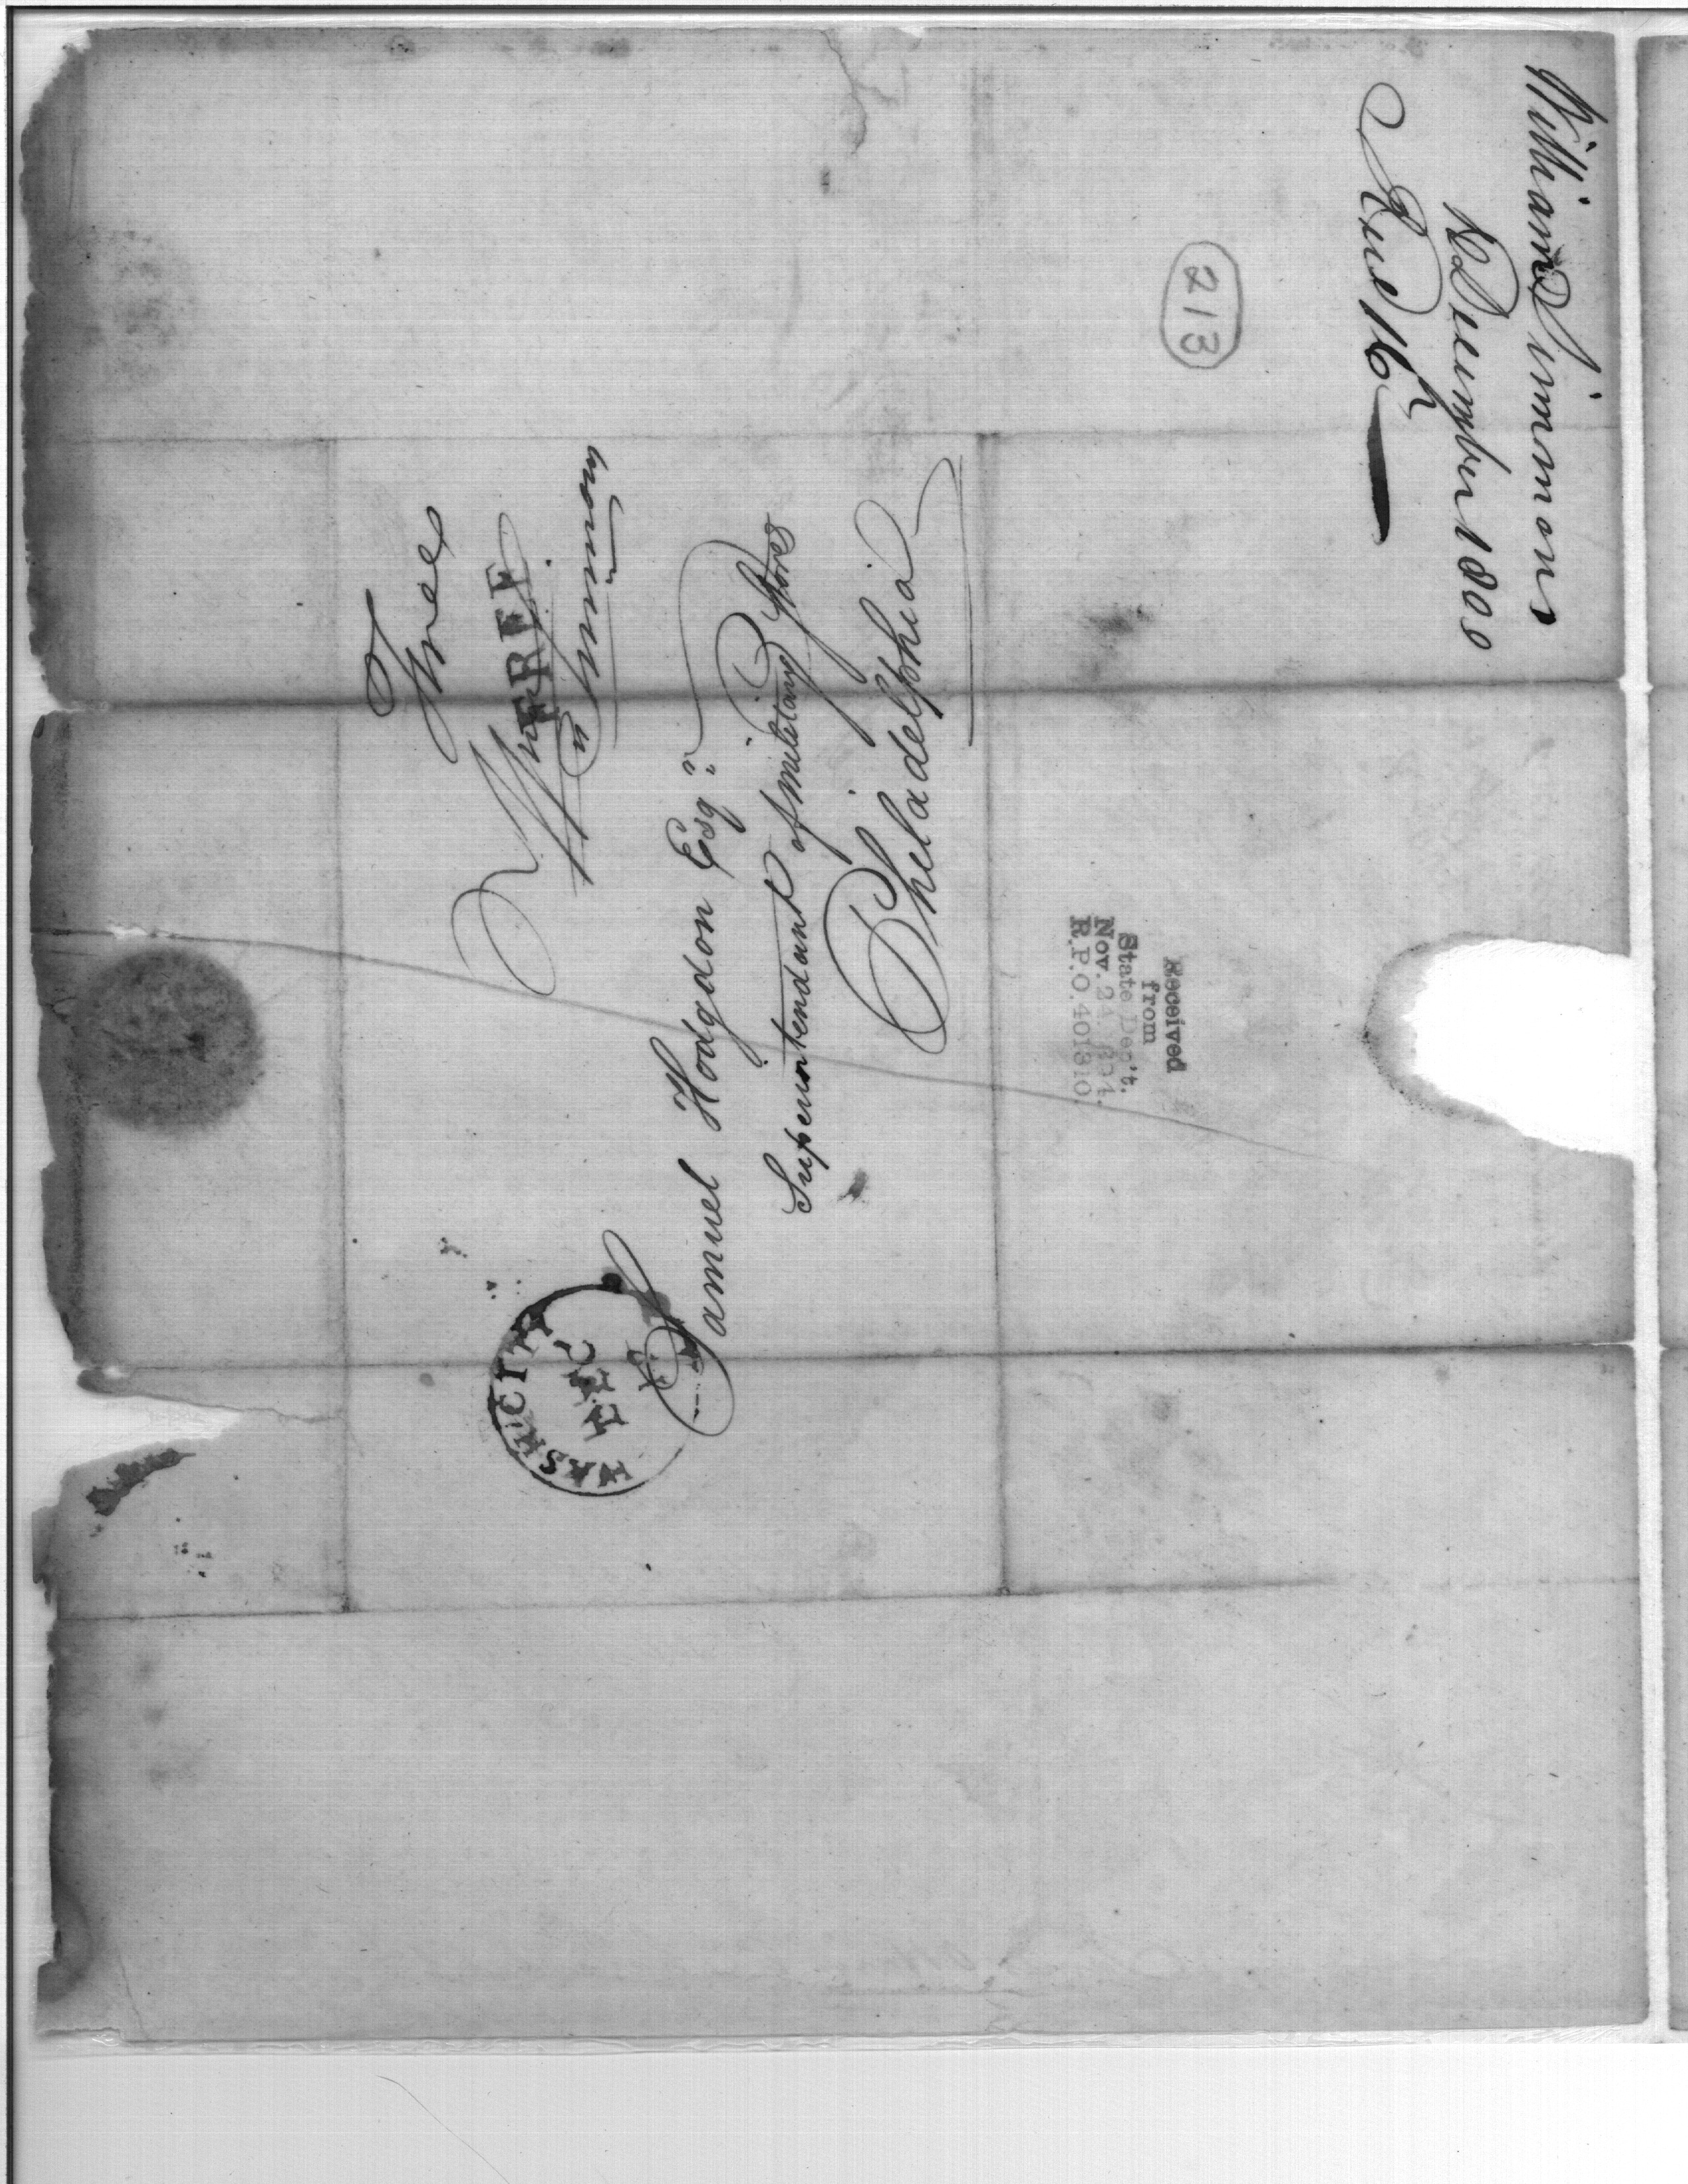 William Simmons
12 December 1800
Recd 16th
213
Free
FREE
Wm Simmons
WASH. CITY
DEC
Samuel Hodgdon Esqr
Superintendant of Military Stores
Philadelphia
Received
from
State Dep't.
Nov. 24,
R.P.O. 401310.